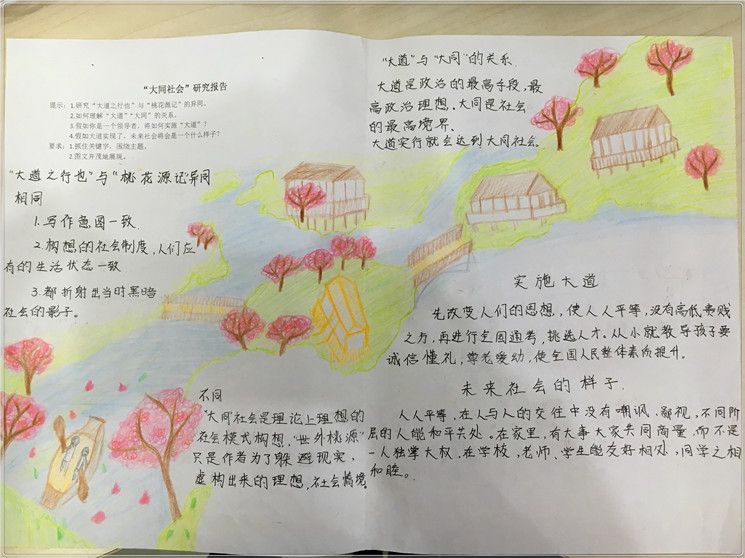 “大同社会”研究报告
提示：1.研究“大道之行也”与“桃花源记”的异同。
2.如何理解“大道”“大同”的关系。
3.假如你是一个领导者，将如何实施“大道”？
4.假如大道实现了，未来社会将会是一个什么样子？
要求：1.抓住关键字，围绕主题。
2.图文并茂地展现。
“大道之行也”与“桃花源记”异同
相同
1.写作意图一致
2.构想的社会制度，人们应
有的生活状态一致
3.都折射出当时黑暗
社会的影子。
不同
“大同社会”是理论上理想的
社会模式构想，“世外桃源”
只是作者为了躲避现实，
虚构出来的理想，社会情境
“大道”与“大同”的关系
大道是政治的最高手段，最
高政治理想。大同是社会
的最高境界.
大道实行就会达到大同社会。
实施大道
先改变人们的思想，使人人平等，没有高低贵贱
之分，再进行全国通考，挑选人才。从小就教导孩子要
诚信懂礼，尊老爱幼，使全国人民整体素质提升。
未来社会的样子.
人人平等，在人与人的交往中没有嘲讽、鄙视，不同阶
层的人能和平共处。在家里，有大事大家共同商量，而不是
一人独掌大权，在学校，老师、学生能友好相处，同学之相
和睦。